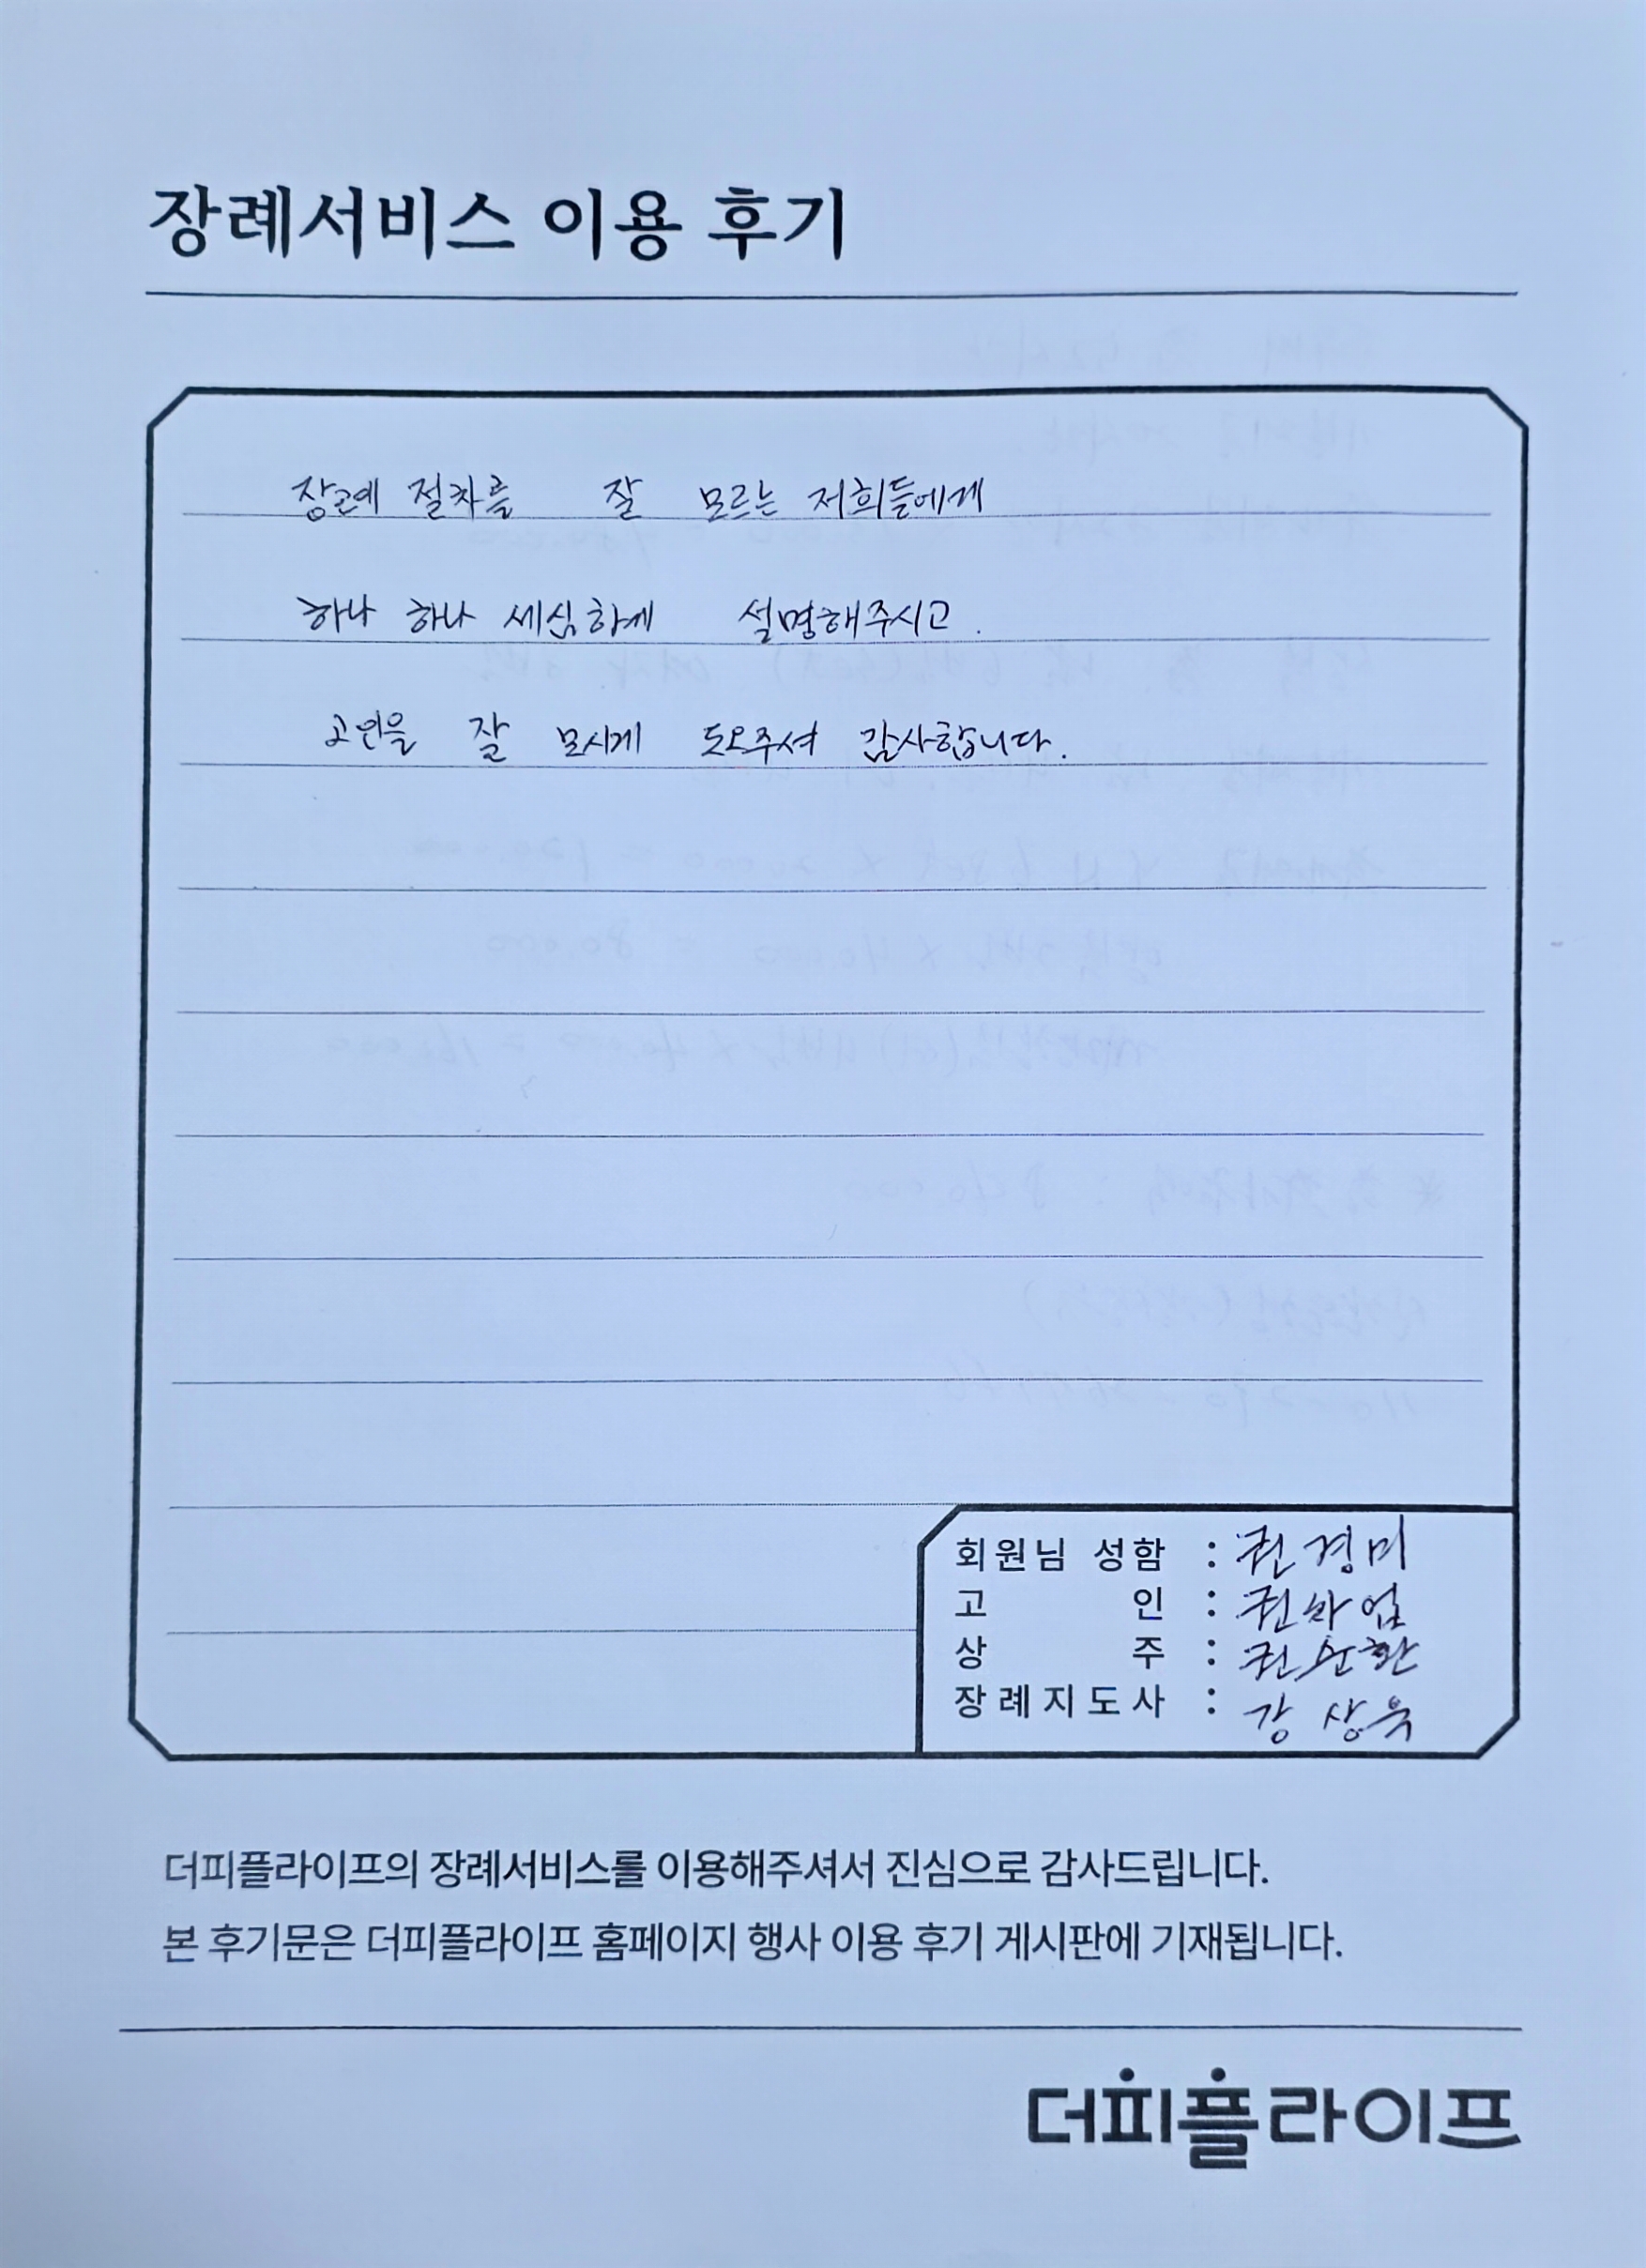 장례서비스 이용 후기
장례 절차를 잘 모르는 저희들에게
하나 하나 세심하게 설명해주시고.
고인을 잘 모시게 도와주셔 감사합니다.
회원님 성함 : 권경미
고 인 : 권차업
상 주 : 권순환
장례지도사 : 강상욱
더피플라이프의 장례서비스를 이용해주셔서 진심으로 감사드립니다.
본 후기문은 더피플라이프 홈페이지 행사 이용 후기 게시판에 기재됩니다.
더피플라이프